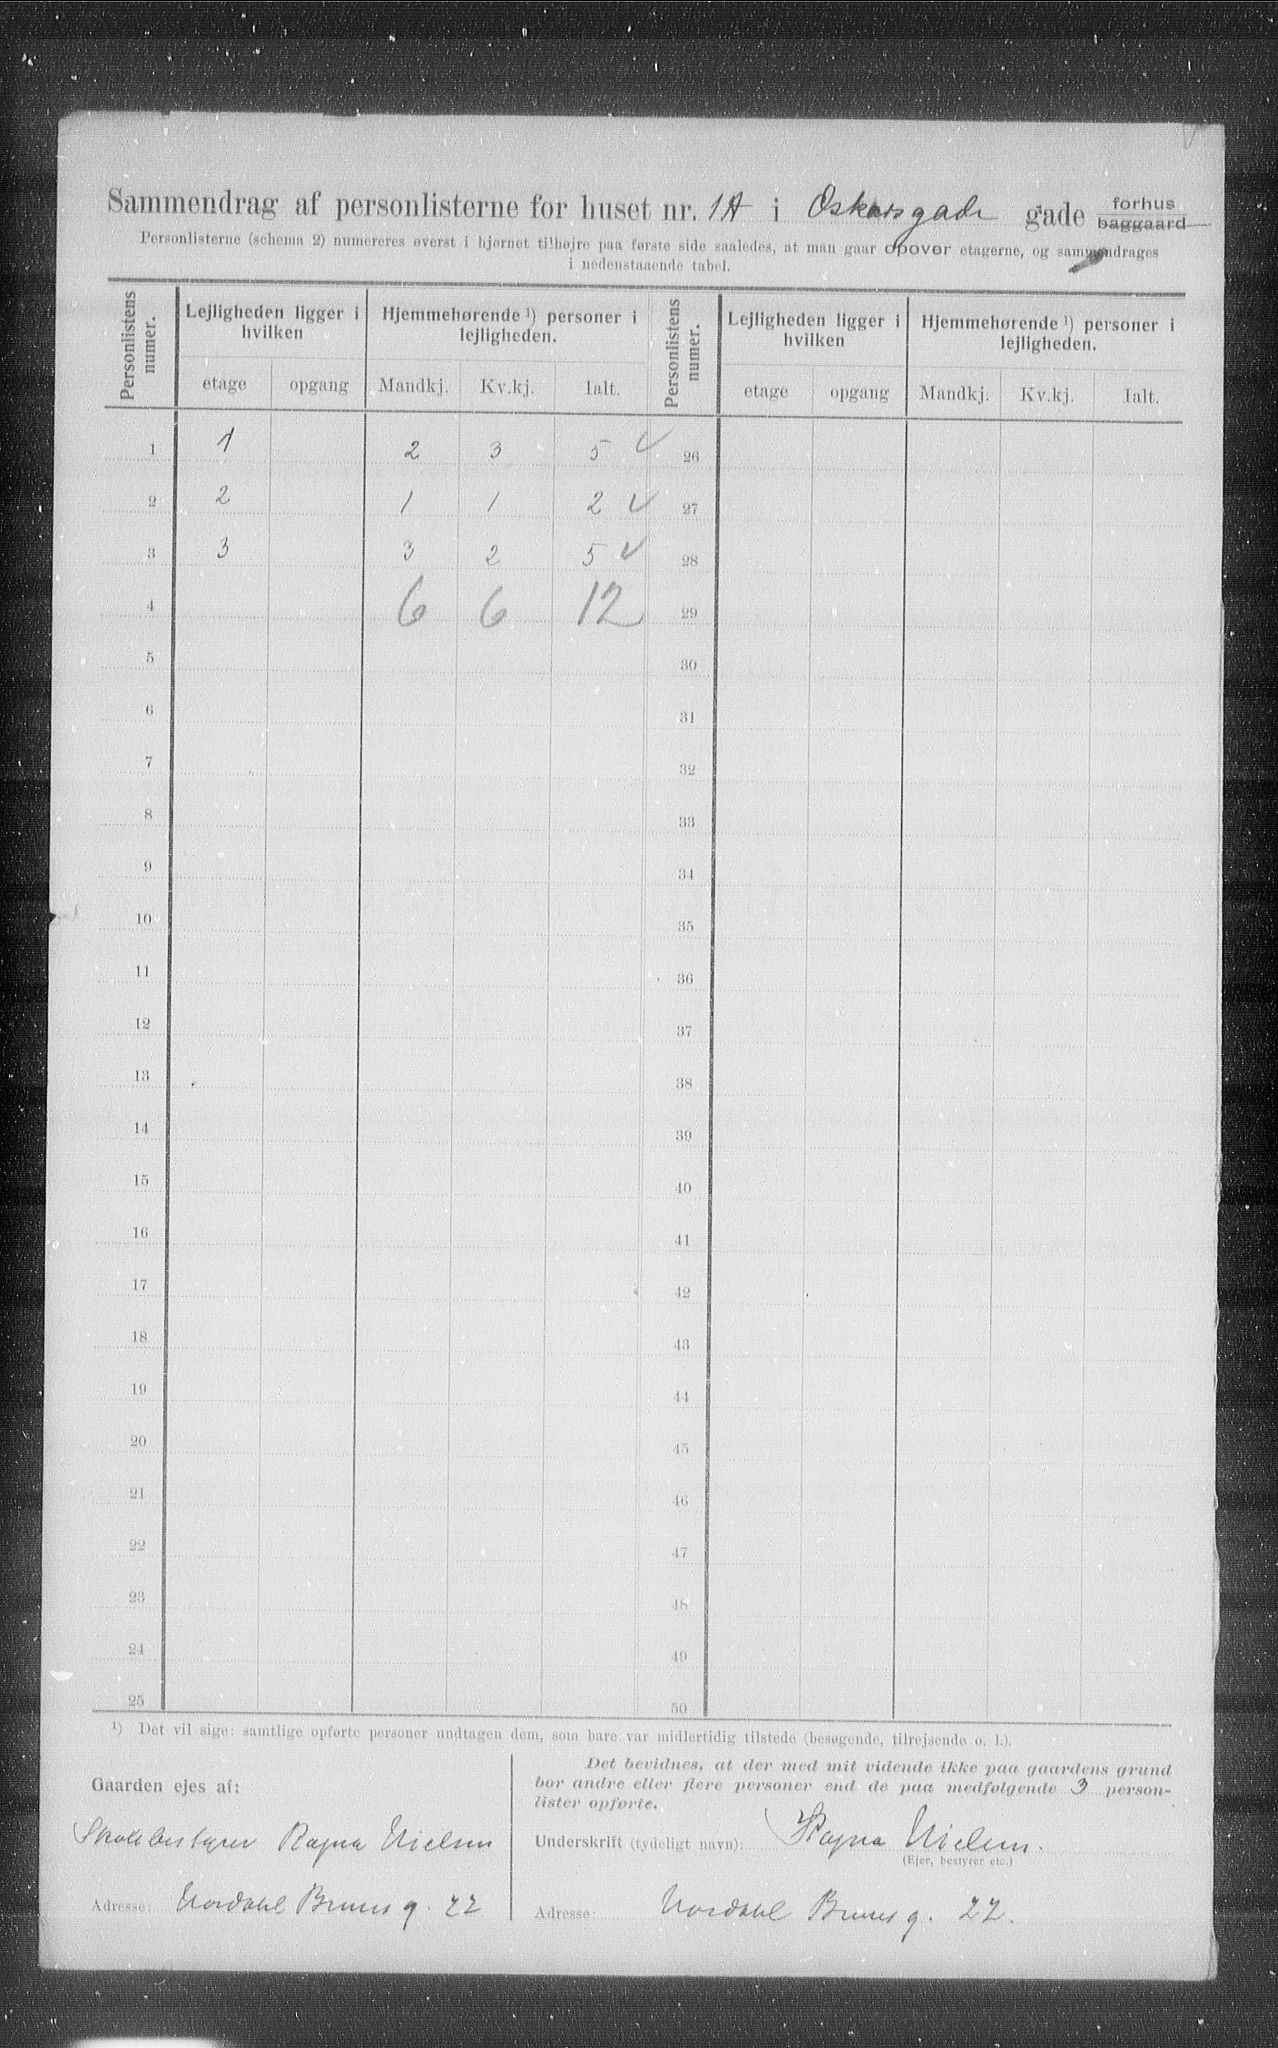 Sammendrag af personlisterne for huset nr. 1A i Oskarsgade gade forhus baggaard
Personlisterne (schema 2) numereres øverst i hjørnet tilhøjre paa første side saaledes, at man gaar opover etagerne, og sammendrages
i nedenstaaende tabel.
Personlistens numer. Lejligheden ligger i hvilken Hjemmehørende ¹) personer i lejligheden. Personlistens numer. Lejligheden ligger i hvilken Hjemmehørende ¹) personer i lejligheden.
etage opgang Mandkj. Kv.kj. Ialt. etage opgang Mandkj. Kv.kj. Ialt.
1 1 2 3 5 ✓ 26
2 2 1 1 2 ✓ 27
3 3 3 2 5 ✓ 28
4 6 6 12 29
5 30
6 31
7 32
8 33
9 34
10 35
11 36
12 37
13 38
14 39
15 40
16 41
17 42
18 43
19 44
20 45
21 46
22 47
23 48
24 49
25 50
¹) Det vil sige: samtlige opførte personer undtagen dem, som bare var midlertidig tilstede (besøgende, tilrejsende o. l.).
Gaarden ejes af:
Skolebestyrer Ragna Nielsen
Adresse: Nordahl Brunsg. 22
Det bevidnes, at der med mit vidende ikke paa gaardens grund
bor andre eller flere personer end de paa medfølgende 3 person-
lister opførte.
Underskrift (tydeligt navn): Ragna Nielsen.
(Ejer, bestyrer etc.)
Adresse: Nordahl Brunsg. 22.